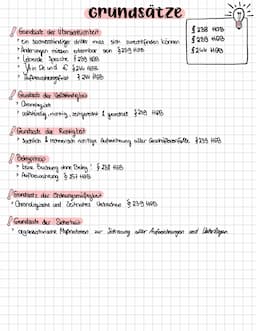 Grundsätze
§ 238 HGB
§ 239 HGB
§ 244 HGB
Grundsatz der Übersichtlichkeit
Ein sachverständiger dritter muss sich zurechtfinden können
Änderungen müssen erkennbar sein § 239 HGB
Lebende Sprache § 239 HGB
JA in De und € § 244 HGB
Aufbewahrungsfrist § 244 HGB
Grundsatz der Vollständigkeit
vollständig, richtig, zeitgerecht & geordnet § 239 HGB
Grundsatz der Richtigkeit
Sachlich & rechnerisch richtige Aufzeichnung aller Geschäftsvorfälle § 239 HGB
Belegprinzip
keine Buchung ohne Beleg § 238 HGB
Aufbewahrung § 257 HGB
Grundsatz der Ordnungsmäßigkeit
Chronologische und § 239 HGB
Grundsatz der Sicherheit
organisatorische Maßnahmen zur Sicherung aller Aufzeichnungen und Unterlagen